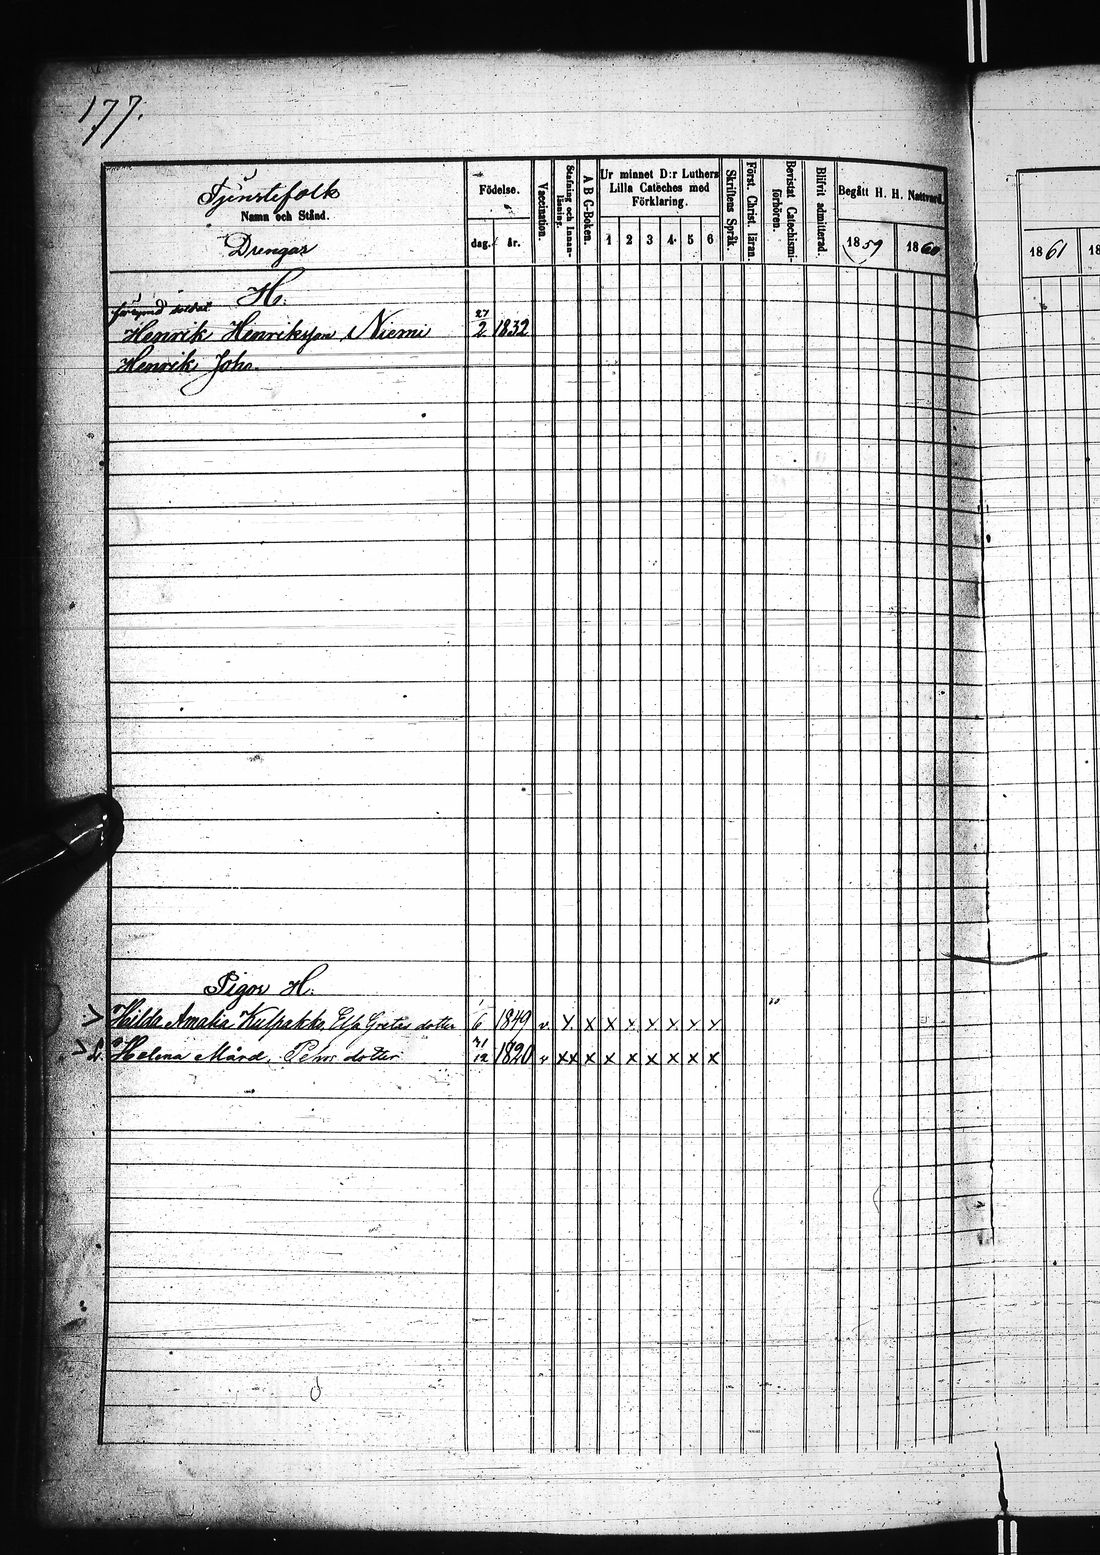 177.
Tjenstefolk
Namn och Stånd.
Drengar
Födelse.
dag. år.
Vaccination.
Stafning och Innanläsning.
A B C-Boken.
Ur minnet D:r Luthers
Lilla Cateches med
Förklaring.
1 2 3 4 5 6
Skriftens Språk.
Först. Christ. läran.
Bevistat Catechismi-
förhören.
Blifvit admitterad.
Begått H. H. Nattvard.
1859 1860
1861 18
H.
soldat
Henrik Henriksson Niemi 27 2 1832
Henrik Joh.
Pigor H.
Hilda Amalia Kulpakko, Elsa Gretas dotter 1 6 1849 v. x x x x x x x x
Helena Mård, Pehrs dotter 31 12 1820 v xx x x x x x x x